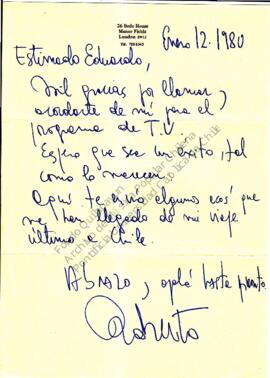 26 Bede House
Manor Fields
London SW15
Enero 12. 1980
Estimado Eduardo,
Mil gracias por llamar y
acordarte de mí para el
programa de T.V
Espero que sea un éxito, tal
como lo merecen.
Aquí te envío algunas cosas que
me han llegado de mi viaje
último a Chile.
Abrazo, y ojalá hasta pronto.
Roberto